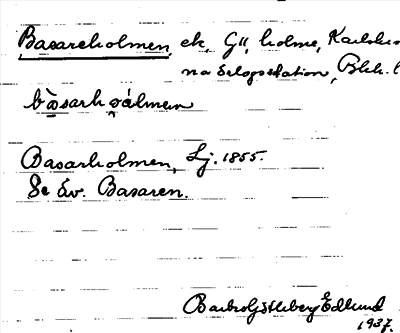 Basareholmen, ek, Gll, holme, Karlskro
na örlogsstation, Blek. l
bàsarhǫ́lmen
Basarholmen, Lj. 1855.
Se öv. Basaren.
Edlund
1937.